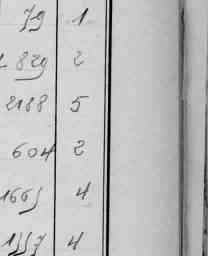 79 1
829 2
2188 5
604 2
1665 4
1557 4